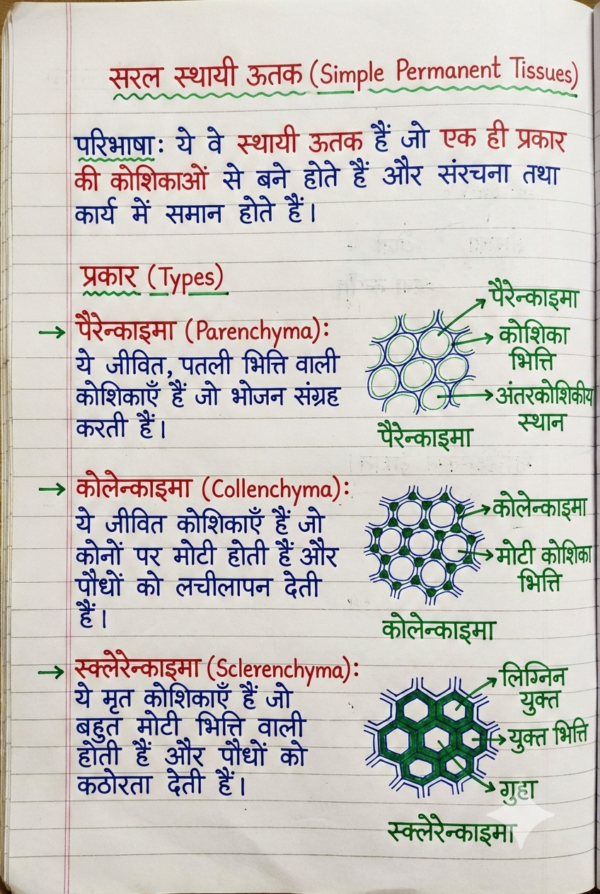 सरल स्थायी ऊतक (Simple Permanent Tissues)
परिभाषा: ये वे स्थायी ऊतक हैं जो एक ही प्रकार
की कोशिकाओं से बने होते हैं और संरचना तथा
कार्य में समान होते हैं।
प्रकार (Types)
→ पैरेन्काइमा (Parenchyma):
ये जीवित, पतली भित्ति वाली
कोशिकाएँ हैं जो भोजन संग्रह
करती हैं।
पैरेन्काइमा
कोशिका
भित्ति
अंतरकोशिकीय
स्थान
पैरेन्काइमा
→ कोलेन्काइमा (Collenchyma):
ये जीवित कोशिकाएँ हैं जो
कोनों पर मोटी होती हैं और
पौधों को लचीलापन देती
हैं।
कोलेन्काइमा
मोटी कोशिका
भित्ति
कोलेन्काइमा
→ स्क्लेरेन्काइमा (Sclerenchyma):
ये मृत कोशिकाएँ हैं जो
बहुत मोटी भित्ति वाली
होती हैं और पौधों को
कठोरता देती हैं।
लिग्निन
युक्त
युक्त भित्ति
गुहा
स्क्लेरेन्काइमा